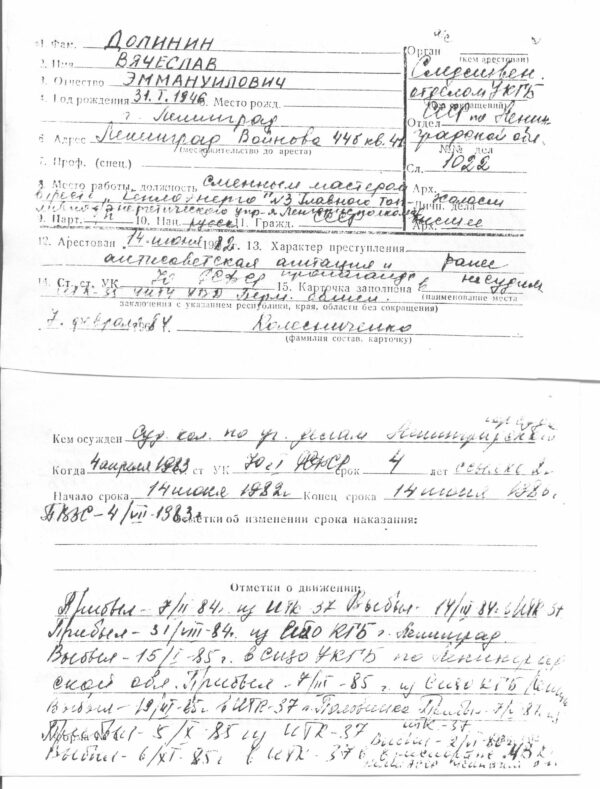 1. Фам. ДОЛИНИН
2. Имя ВЯЧЕСЛАВ
3. Отчество ЭММАНУИЛОВИЧ
4. Год рождения 31.I.1946 Место рожд.
г. Ленинград
6. Адрес Ленинград Войнова 44б кв.
(местожительство до ареста)
7. Проф. (спец.)
8. Место работы, должность сменным мастером
"Теплоэнерго" №3 Главного Топ-
9. Парт. 10. Нац. русск 11. Гражд.
Орган
(кем арестован)
Следствен.
отделом УКГБ
СССР по Ленин
Отдел
градской обл.
№№ дел
Сл. 1022
Арх.
личн. дела
Арх.
12. Арестован 14 июня 1982 г. 13. Характер преступления
антисоветская агитация и пропаганда ранее
14. Ст. ст. УК 70 РСФСР 15. Карточка заполнена в несудим
(наименование места
заключения с указанием республики, края, области без сокращения)
7 февраля 84 г. Колесниченко
(фамилия состав. карточку)
Кем осужден Суд. кол. по уг. делам Ленинградского
Когда 4 апреля 1983 ст УК 70 ч I РСФСР срок 4 лет ссылке 2 г.
Начало срока 14 июня 1982 г Конец срока 14 июня
4/VII-1983 г Отметки об изменении срока наказания:
Отметки о движении:
Прибыл - 7/II 84 г. из ИТК 37 Выбыл - 14/III 84 г. в ИТК 37
Прибыл - 31/VIII-84 г. из СИЗО КГБ г. Ленинград.
Выбыл - 15/I-85 г. в СИЗО УКГБ по Ленинград
ской обл. Прибыл - 7/III-85 г. из СИЗО КГБ
Выбыл - в ИТК-37
Прибыл - 5/X-85 из ИТК-37
Выбыл - 6/XI-85 г в ИТК-37